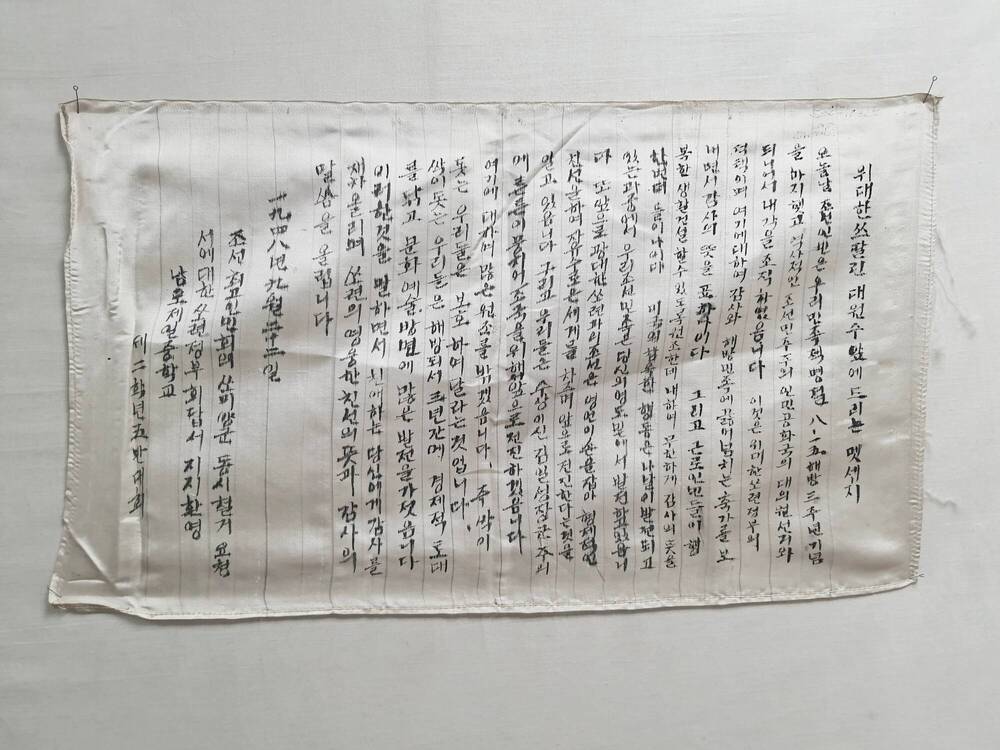 위대한 쓰딸린 대원수 앞에 드리는 멧세지
오늘날 조선인민은 우리 민족의 명절 八·一五 해방 三주년 기념
을 마지했고 역사적인 조선민주주의 인민공화국의 대의원 선거와
되넘어서 내각을 조직하였읍니다 이것은 위대한 쏘련 정부의
덕택이며 여기에 대하여 감사와 해방민족에 끓어 넘치는 축가를 보
내면서 감사의 뜻을 표하나이다 그리고 근로인민들이 행
복한 생활건설 할 수 있도록 원조한데 대하여 무한하게 감사의 뜻을
한번 더 들이나이다 미국의 행동은 나날이 발전되고
있는 과중에 우리 조선민족은 당신의 영도 밑에서 발전할
다 또 앞으로 광대한 쏘련과 조선은 영원이 손을 잡아
선을 하며 자유로운 세계를 앞으로 전진한다는 것을
알고 있읍니다 그리고 우리들은 수상이신 김일성장군 주위
에 튼튼이 뭉치어 조국을 위해 앞으로 전진하겠읍니다
여기에 대하여 많은 원조를 바랍니다. 주
돗는 우리들을 보호하여 달라는 것입니다.
싹이 돗는 우리들은 해방되서 三년간에 경제적 토대
를 닦고 문화 예술 방면에 많은 발전을 가젓읍니다
이러한 것을 말하면서 친애하는 당신에게 감사를
재차 올리며 쏘련의 영웅한 친선의 뜻과 감사의
말씀을 올립니다
一九四八년 九월 二十三일
조선 최고인민회의 쏘미 양군 동시 철거 요청
서에 대한 쏘련정부 회답서 지지 환영
남포제일중학교
제二학년 五반 대회